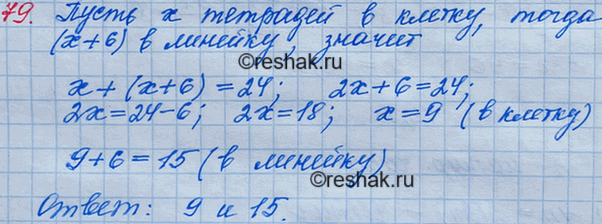 79. Пусть x тетрадей в клетку, тогда
(x+6) в линейку, значит
x+(x+6)=24; 2x+6=24;
2x=24-6; 2x=18; x=9 (в клетку)
9+6=15 (в линейку)
Ответ: 9 и 15.
©reshak.ru
©reshak.ru